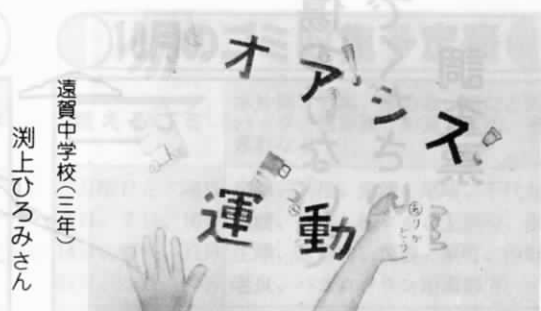 オアシス
運動
ありがとう
遠賀中学校(三年)
渕上ひろみさん